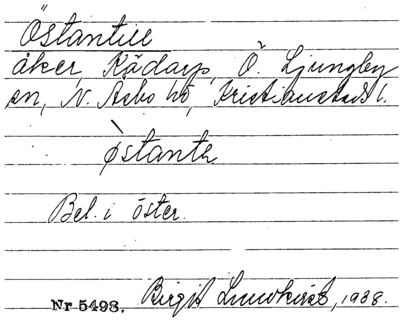 Östantill
åker, Kädarp, Ö. Ljungby
sn, N. Åsbo hd, Kristianstads l.
østantẹ
Bel. i öster.
Nr 5498. Birgit Lundkvist, 1938.